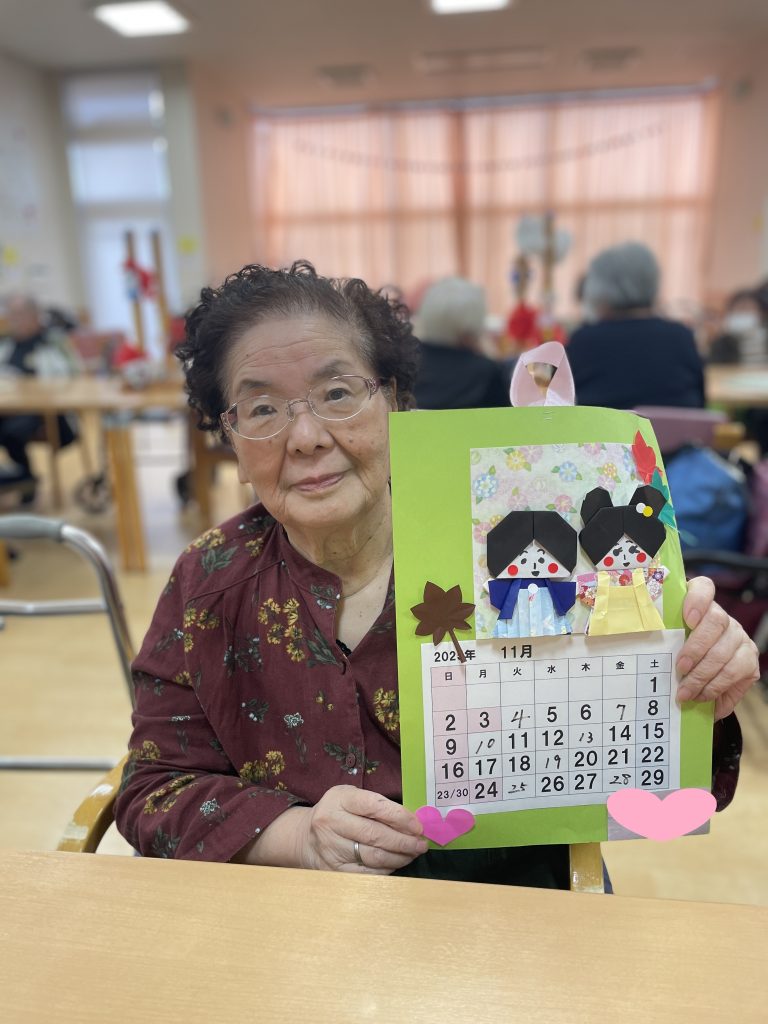 2025年 11月
日 月 火 水 木 金 土
1
2 3 4 5 6 7 8
9 10 11 12 13 14 15
16 17 18 19 20 21 22
23/30 24 25 26 27 28 29